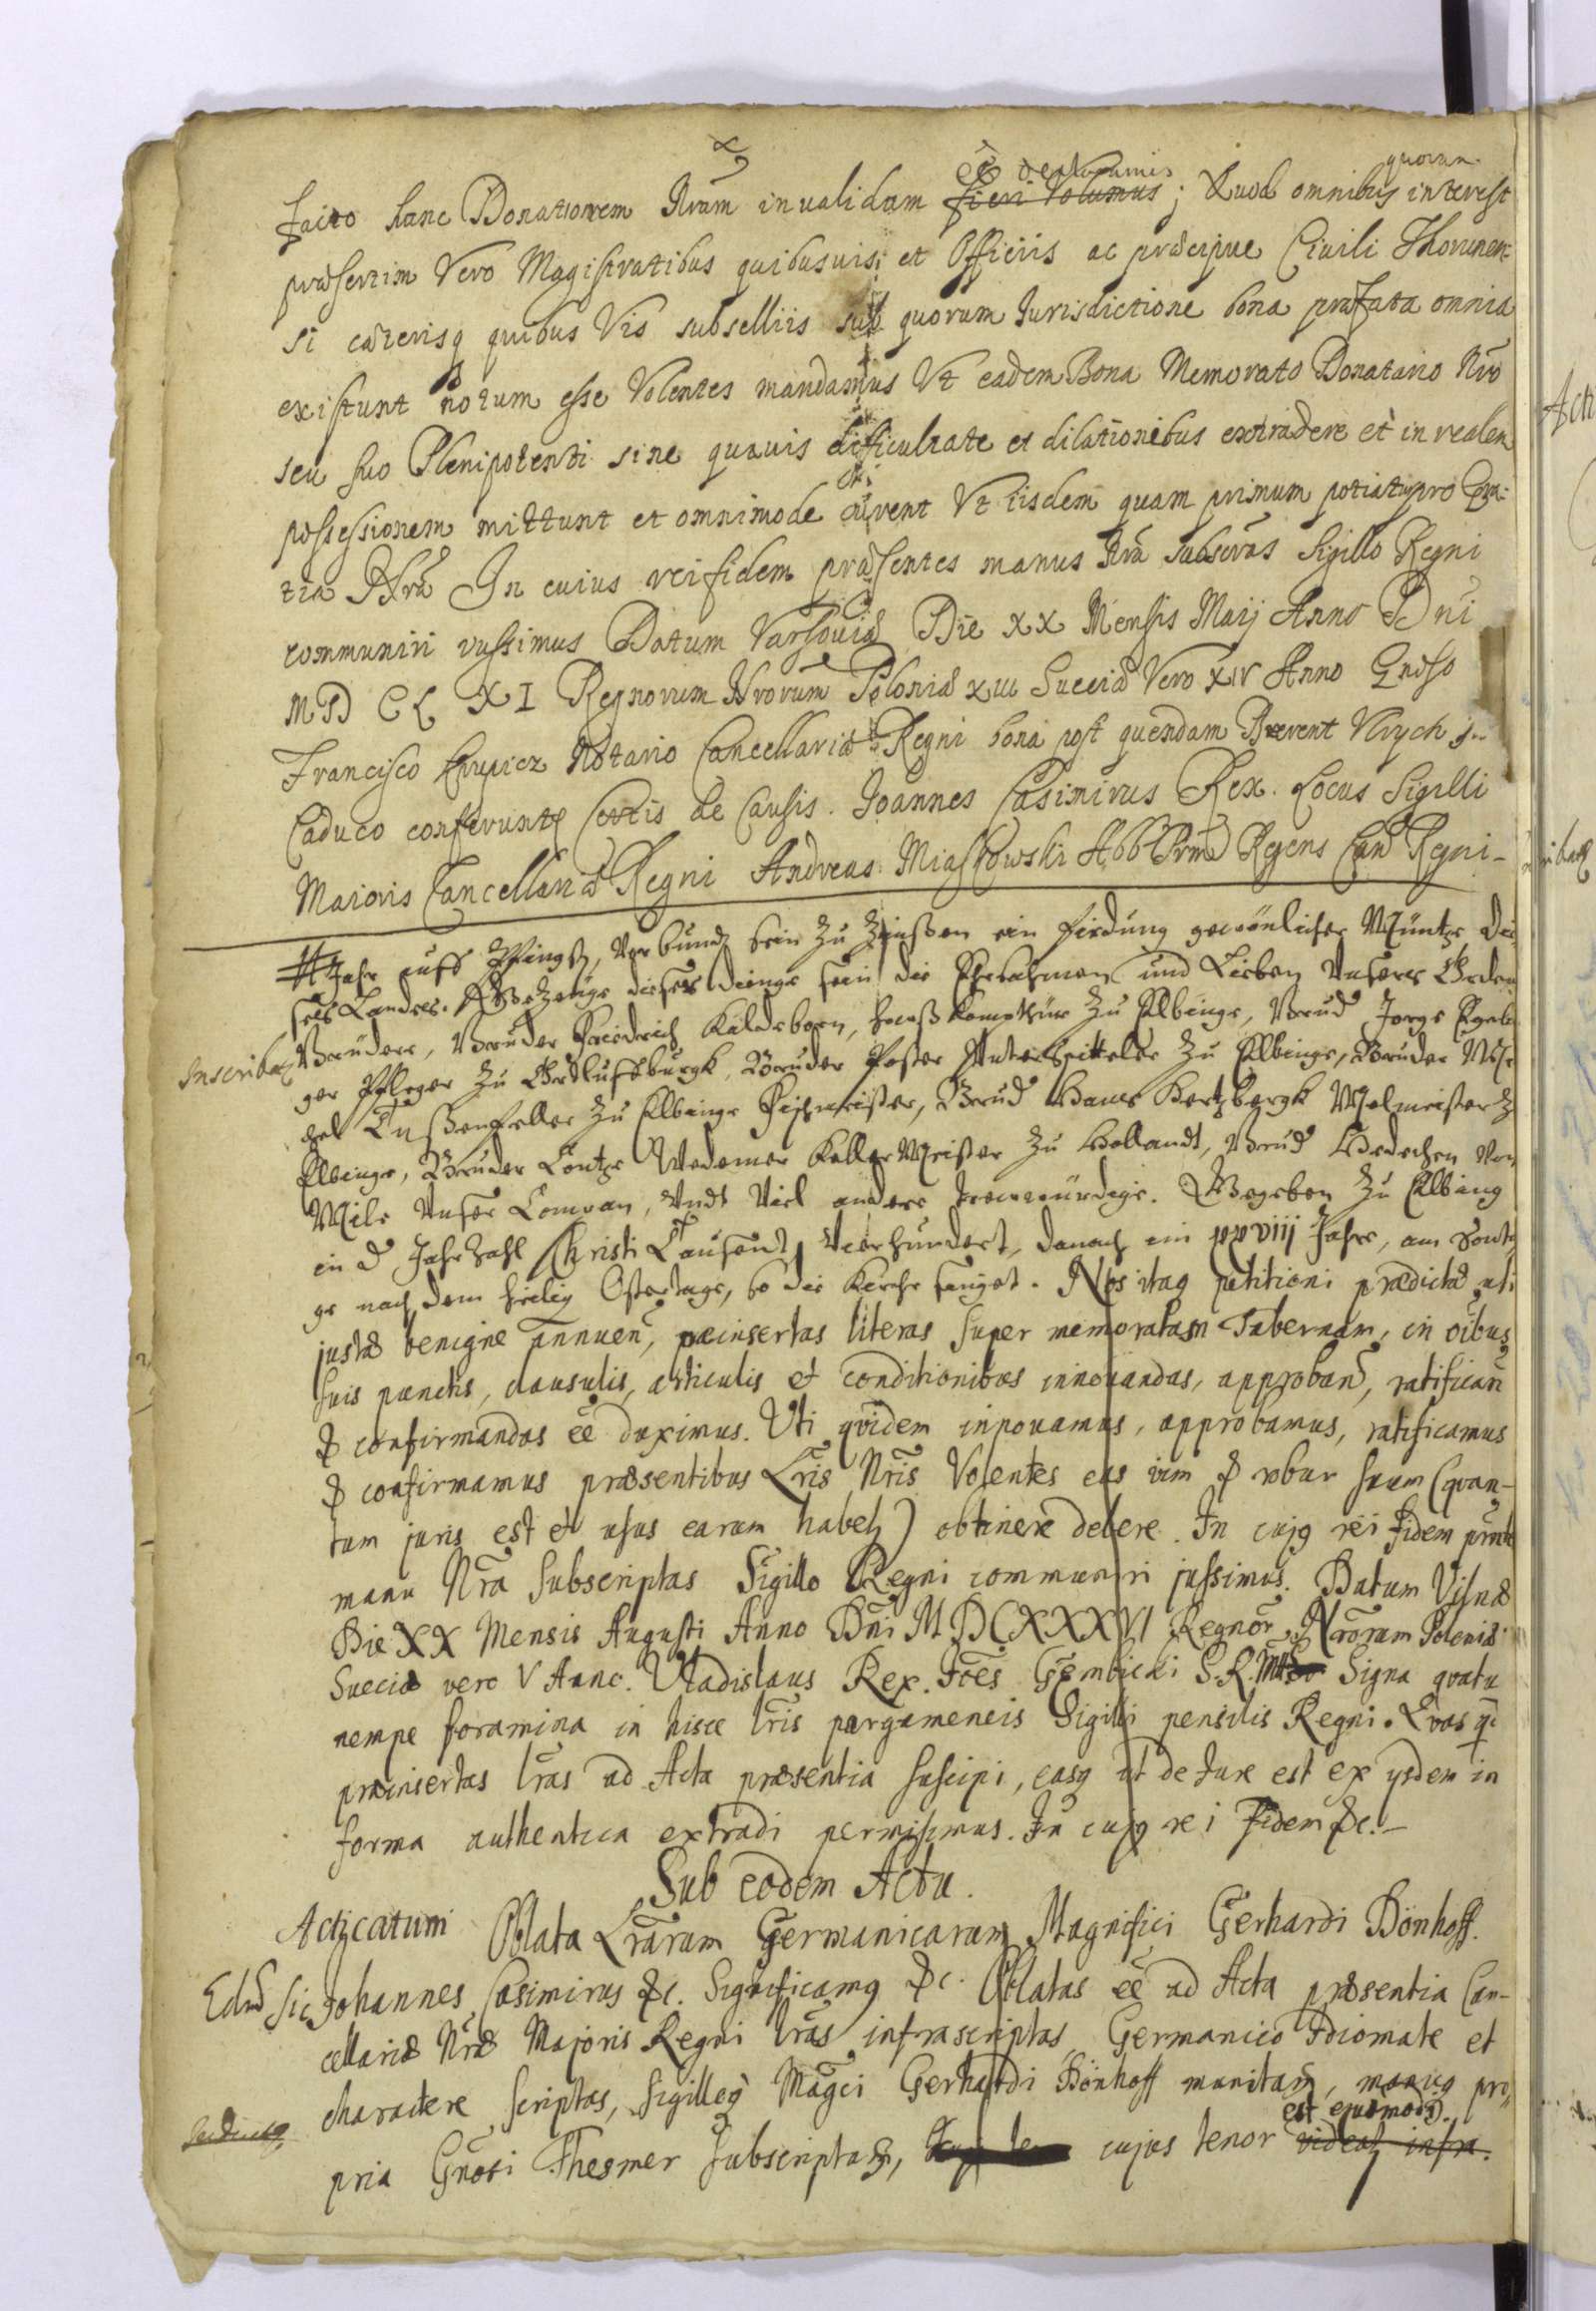 facto hanc Donationem Nram inualidam eē declaramus ~~fieri Volumus~~; Quod omnibus quorum interest
præsertim Vero Magistratibus quibusuis et Officiis ac præcipue Ciuili Thorunen:
si cæterisq quibus Vis subselliis sub quorum Iurisdictione bona præfata omnia
existunt notum esse Volentes mandamus Vt eadem Bona Memorato Donatario Nro
seu suo Plenipotenti sine quauis difficultate et dilationibus extradere et in realem
possessionem mittunt et omnimode curent Vt iisdem quam primum potiatur pro Gra:
tia Nra In cuius rei fidem præsentes manus Nra subscras Sigillo Regni
communiri iussimus Datum Varsouiæ Die XX Mensis Maij Anno Dni
MD CL XI Regnorum Nrorum Poloniæ XIII Sueciæ Vero XIV Anno
Francisco Notario Cancellariæ Regni bona post quendam Brevent Vlrych
Caduco conferuntur Certis de Causis. Joannes Casimirus Rex. Locus Sigilli
Maioris Cancellariæ Regni Andreas Miaskowski Abb Prm Regens Can Regni-
Jahr auff Pfingst, Verbundt sein zu Zinßen ein firdung gewönlicher Müntze die-
ses Landes. Gezeuge dieses dinges sein die Ehrsahmen und Lieben Unsers Orden
Inscribatz Brüdere, Bruder Friedrich Kaldeborn, Haußkompthür zu Elbinge, Brud Jorge
ger Pfleger zu Ortluffsburgk, Bruder Unterspitteler zu Elbinge, Bruder
zu Elbinge Fischmeister, Brud Hans Hertzbergk Molmeister z
Elbinge, Bruder Contze KellerMeister zu Hollandt, Brud Von
Mile Unser Compan, Undt Viel andere trewwürdige. Gegeben zu Elbing
in d Jahrzahl Christi Tausent, Vierhundert, danach im xxviij Jahre, am Sonta
ge nach dem Heilig Ostertage, so die Kirche singet. Nos itaq petitioni prædictæ uti
justæ benigne annuen, præinsertas literas super memoratam Tabernam, in oibus
suis punctis, clausulis, articulis et conditionibus innouandas, approban, ratifican
& confirmandas eē duximus. Uti quidem innouamus, approbamus, ratificamus
& confirmamus præsentibus Lris Nris Volentes eas vim & robur suum (quan-
tum juris est et usus earum habetz) obtinere debere. In cujq rei fidem prnte
manu Nra subscriptas Sigillo Regni communiri jussimus. Datum Vilnæ
Die XX Mensis Augusti Anno Dni MDCXXXVI Regnor Nrorum Poloniæ
Sueciæ vero V Anno. Vladislaus Rex. Joēs Gembicki S.R.M Signa quatu
nempe foramina in hisce lris pargameneis Sigilli pensilis Regni. qd
præinsertas lras ad Acta præsentia suscipi, easq ut de Jure est ex ysdem in
forma authentica extradi permisimus. In cujq rei fidem &c.-
Sub eodem Actu.
Acticatum Oblata Lrarum Germanicarum Magnifici Gerhardi Dönhoff.
Johannes Casimirus &c. Significamq &c. Oblatas eē ad Acta præsentia Can-
cellariæ Nræ Majoris Regni lras infrascriptas, Germanico Idiomate et
charactere scriptas, Sigilloq Magci Gerhardi Dönhoff munitas, manuq pro,,
pria Gnosi Thesmer subscriptas, cujus tenor est ejusmodi. ~~videatz infra~~.